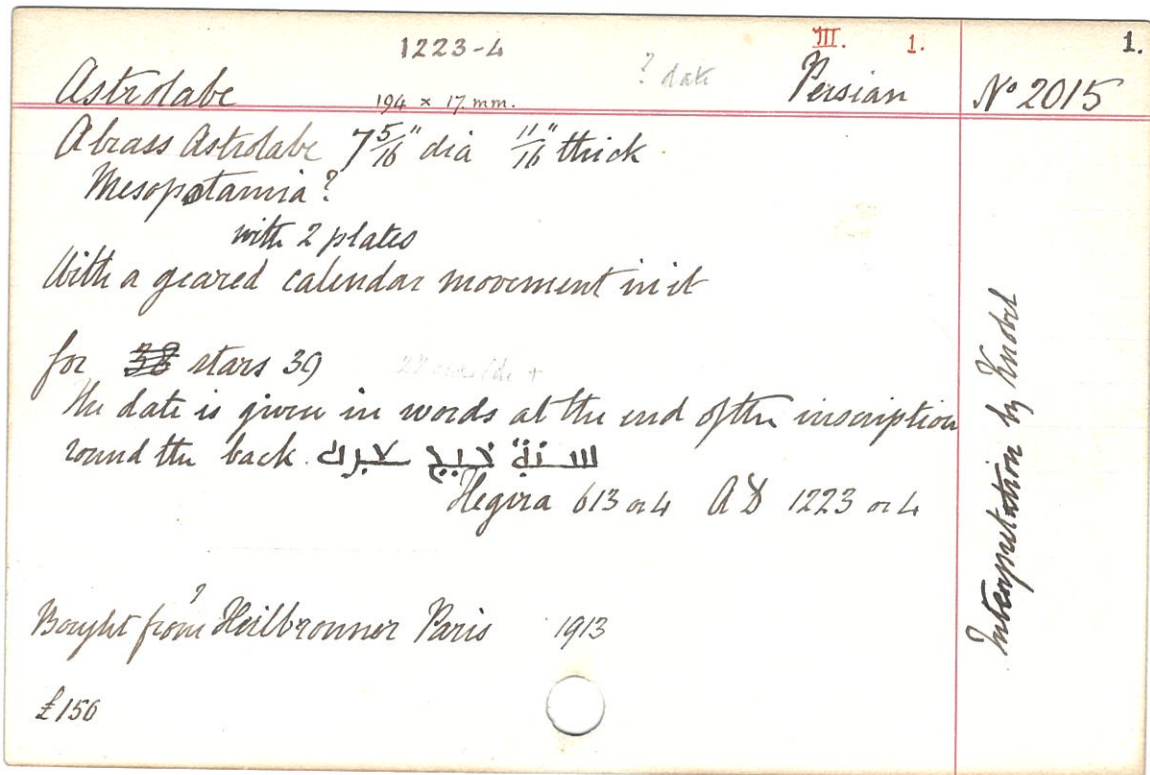 1223-4 III. 1. 1.
? date
Astrolabe 194 × 17. mm. Persian Nº 2015
A brass Astrolabe 7 5/16" dia 11/16" thick
Mesopotamia?
with 2 plates
With a geared calendar movement in it
for 38 stars 39
The date is given in words at the end of the inscription
round the back. سنة
Hegira 613 or 4 A D 1223 or 4
?
Bought from Heilbronner Paris 1913
£156
Interpretation by Knobel